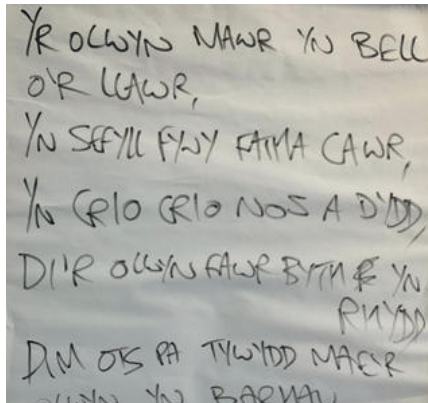 YR OLWYN MAWR YN BELL
O'R LLAWR,
YN SEFYLL FYWY FATHA CAWR,
YN CRIO CRIO NOS A DYDD,
DI'R OLWYN FAWR BYTH YN
RHYDD
DIM OTS PA TYWYDD MAE'R
OLWYN YN BARHAU